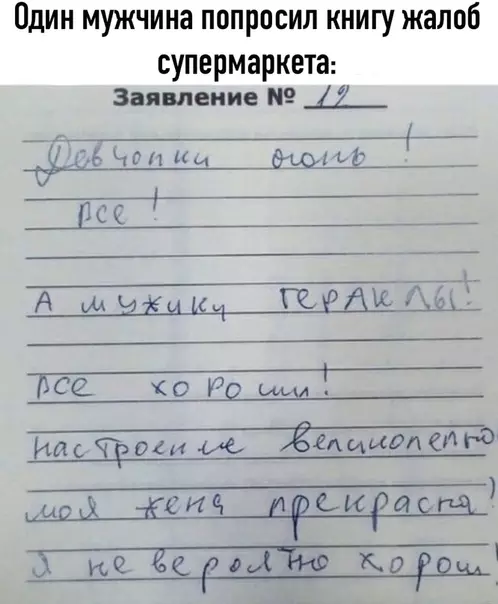 Один мужчина попросил книгу жалоб
супермаркета:
Заявление № 12
Девчонки огонь!
все!
А мужики ГЕРАКЛЫ!
все хороши!
настроение великолепно
моя жена прекрасна!
Я не вероятно хорош!